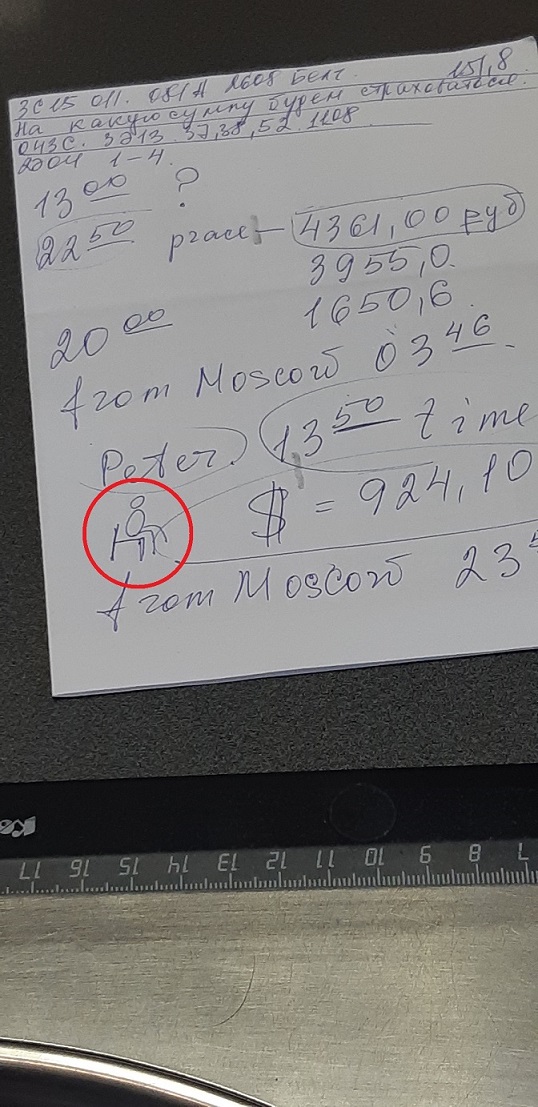 3С15 011. 081А 2608 Белг. 151,8
На какую сумму будем страховаться.
043С. 3Э13 37,38,52 1108
2Э04 1-4.
13 00 ?
22 50 prace - 4361,00 руб
3955,0.
1650,6.
20 00
from Moscow 03 46.
Peter. 13 50 time
$ = 924,10
from Moscow 23
Ke
17 16 15 14 13 12 11 10 9 8 7